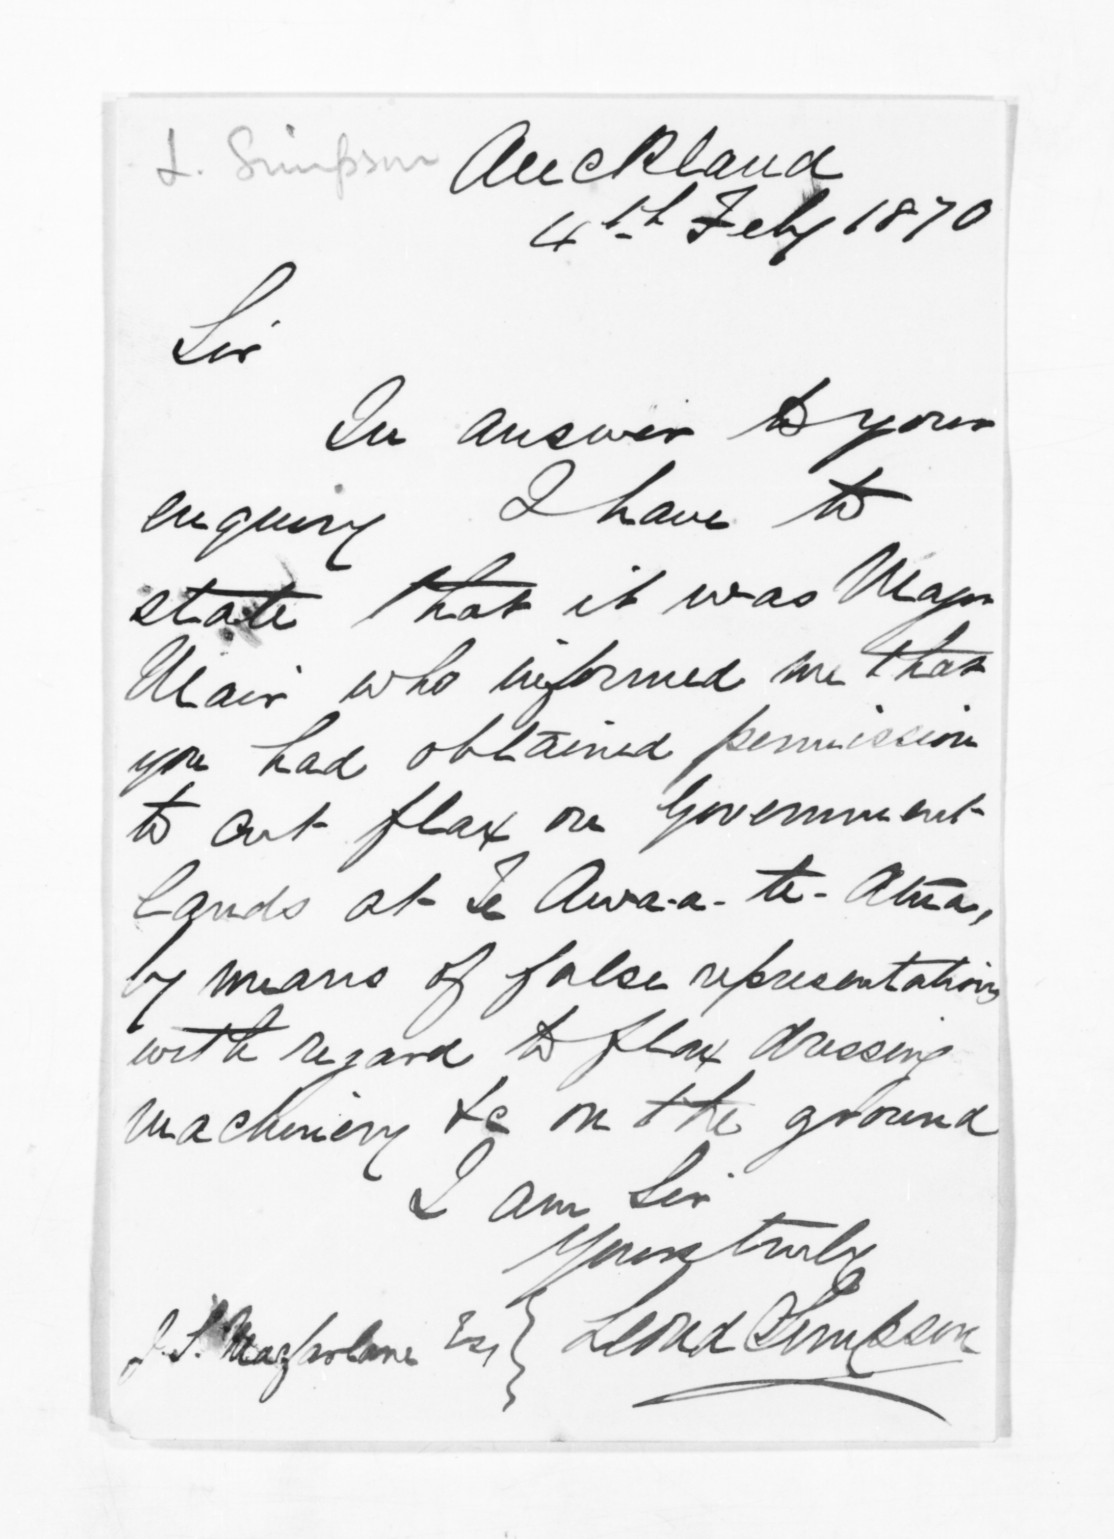 L. Simpson
Auckland
4th Feby 1870
Sir
In answer to your
enquiry I have to
state that it was Major
Mair who informed me that
you had obtained permission
to cut flax on Government
lands at Te Awa-a-te-Atua,
by means of false representations
with regard to flax dressing
machinery &c on the ground
I am Sir
Yours truly
Leond Simpson
J. S. Macfarlane Esq